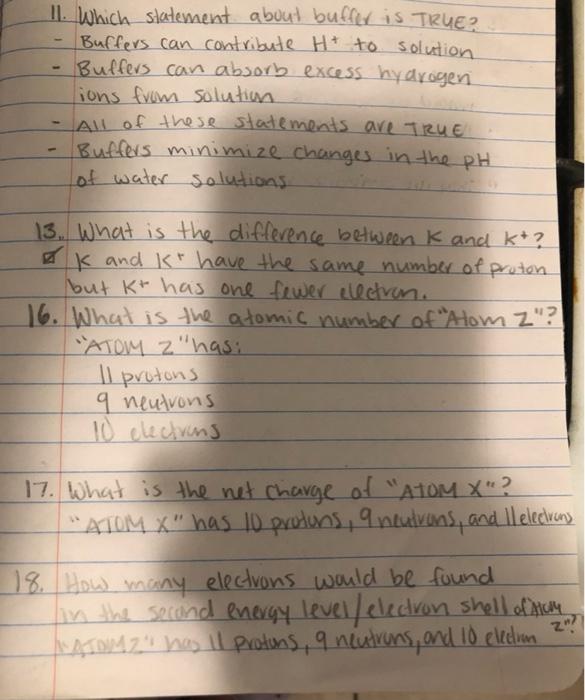 11. Which statement about buffer is TRUE?
- Buffers can contribute H+ to solution
- Buffers can absorb excess hydrogen
ions from solution
- All of these statements are TRUE
- Buffers minimize changes in the pH
of water solutions
13. What is the difference between K and K+?
☑ K and K+ have the same number of proton
but K+ has one fewer electron.
16. What is the atomic number of "Atom Z"?
"ATOM Z" has:
11 protons
9 neutrons
10 electrons
17. What is the net charge of "ATOM X"?
"ATOM X" has 10 protons, 9 neutrons, and 11 electrons
18. How many electrons would be found
in the second energy level/electron shell of "Atom
Z"?
"ATOM Z" has 11 protons, 9 neutrons, and 10 electron